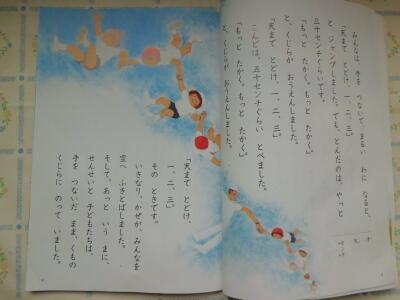 みんなは、手を つないで、まるい わに なると、
「天まで とどけ、一、二、三。」
と、ジャンプしました。でも、とんだのは、やっと
三十センチぐらいです。
「もっと たかく。もっと たかく。」
と、くじらが おうえんしました。
こんどは、五十センチぐらい とべました。
「もっと たかく。もっと たかく。」
と、くじらが おうえんしました。
「天まで とどけ、
一、二、三。」
その ときです。
いきなり かぜが、みんなを
空へ ふきとばしました。
そして、あっと いう まに、
せんせいと 子どもたちは、
手を つないだ まま、くもの
くじらに のって いました。